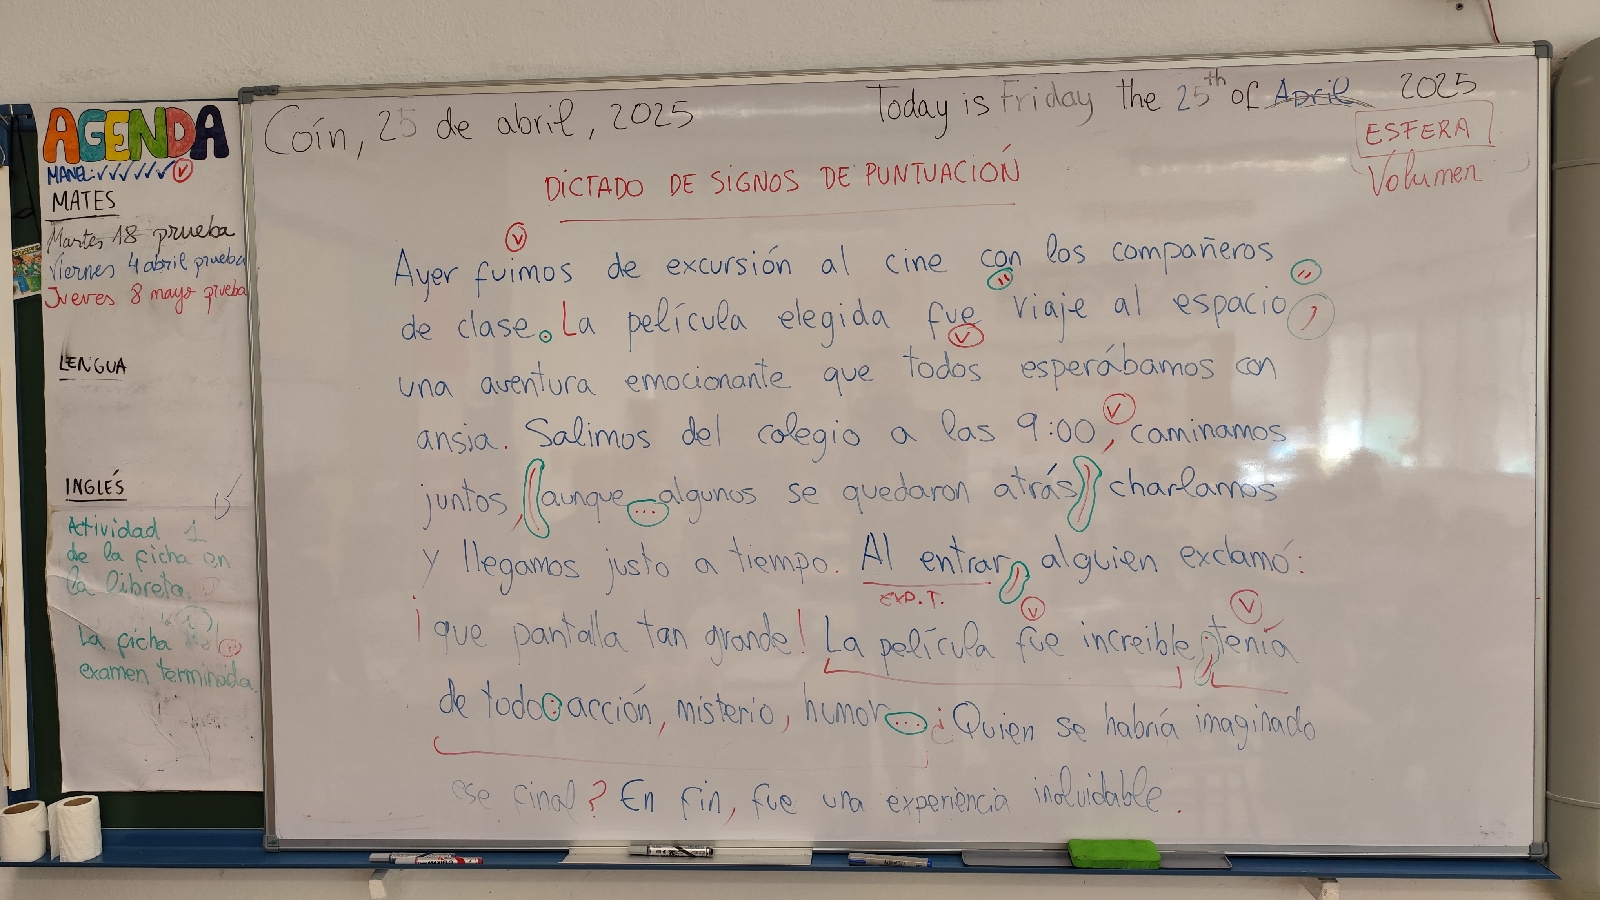 AGENDA
MANEL: ✓✓✓✓✓✓ V
MATES
Martes 18 prueba
Viernes 4 abril prueba
Jueves 8 mayo prueba
LENGUA
INGLÉS
Actividad 1
de la ficha en
la libreta.
La ficha
examen terminada.
Coín, 25 de abril, 2025
Today is Friday the 25th of April 2025
ESFERA
Volumen
DICTADO DE SIGNOS DE PUNTUACIÓN
V
Ayer fuimos de excursión al cine con los compañeros
" "
de clase. La película elegida fue Viaje al espacio ,
V
una aventura emocionante que todos esperábamos con
V
ansia. Salimos del colegio a las 9:00, caminamos
juntos, (aunque ... algunos se quedaron atrás) charlamos
y llegamos justo a tiempo. Al entrar, alguien exclamó:
EXP. T. V V
¡que pantalla tan grande! La película fue increible; tenía
de todo: acción, misterio, humor... ¿Quien se habría imaginado
ese final? En fin, fue una experiencia inolvidable.